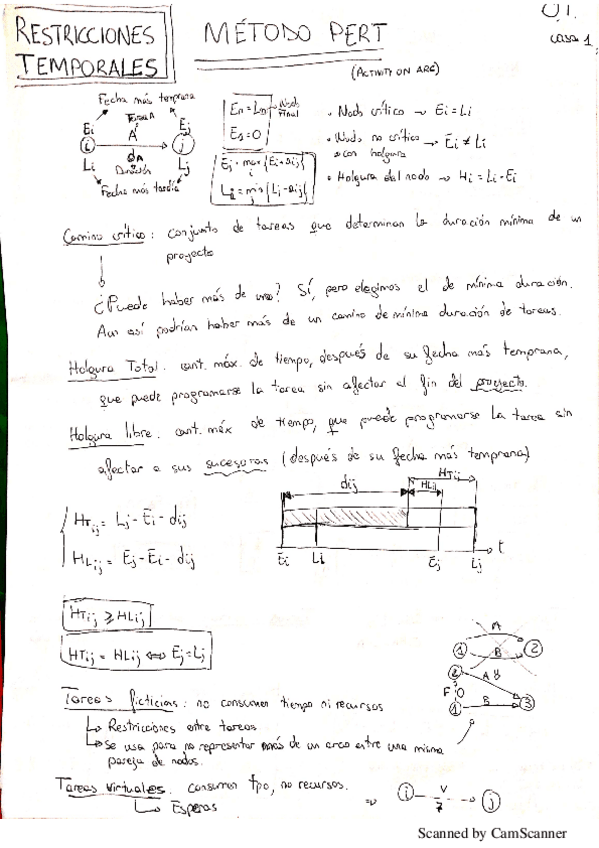 RESTRICCIONES
TEMPORALES
MÉTODO PERT
(ACTIVITY ON ARC)
U.1.
casa 1
Fecha más temprana
Tarea A
Ei Ej
i A j
dA
Li Lj
Duración
Fecha más tardía
En = Ln Nodo Final
E0 = 0
Ej = max {Ei + dij}
i
Li = min {Lj - dij}
j
• Nodo crítico → Ei = Li
• Nodo no crítico → Ei ≠ Li
o con holgura
• Holgura del nodo → Hi = Li - Ei
Camino crítico: conjunto de tareas que determinan la duración mínima de un
proyecto
¿Puede haber más de uno? Sí, pero elegimos el de mínima duración.
Aun así podrían haber más de un camino de mínima duración de tareas.
Holgura Total. cant. máx. de tiempo, después de su fecha más temprana,
que puede programarse la tarea sin afectar al fin del proyecto.
Holgura libre. cant. máx de tiempo, que puede programarse la tarea sin
afectar a sus sucesoras (después de su fecha más temprana)
HTij
dij HLij
HTij = Lj - Ei - dij
HLij = Ej - Ei - dij
Ei Li Ej Lj t
HTij ≥ HLij
HTij = HLij ⟺ Ej = Lj
A
1 B 2
2 A
F 0
1 B 3
Tareas ficticias: no consumen tiempo ni recursos
Restricciones entre tareas
Se usa para no representar más de un arco entre una misma
pareja de nodos.
Tareas virtuales. consumen tpo, no recursos.
Esperas
⇒ i V j
7
Scanned by CamScanner